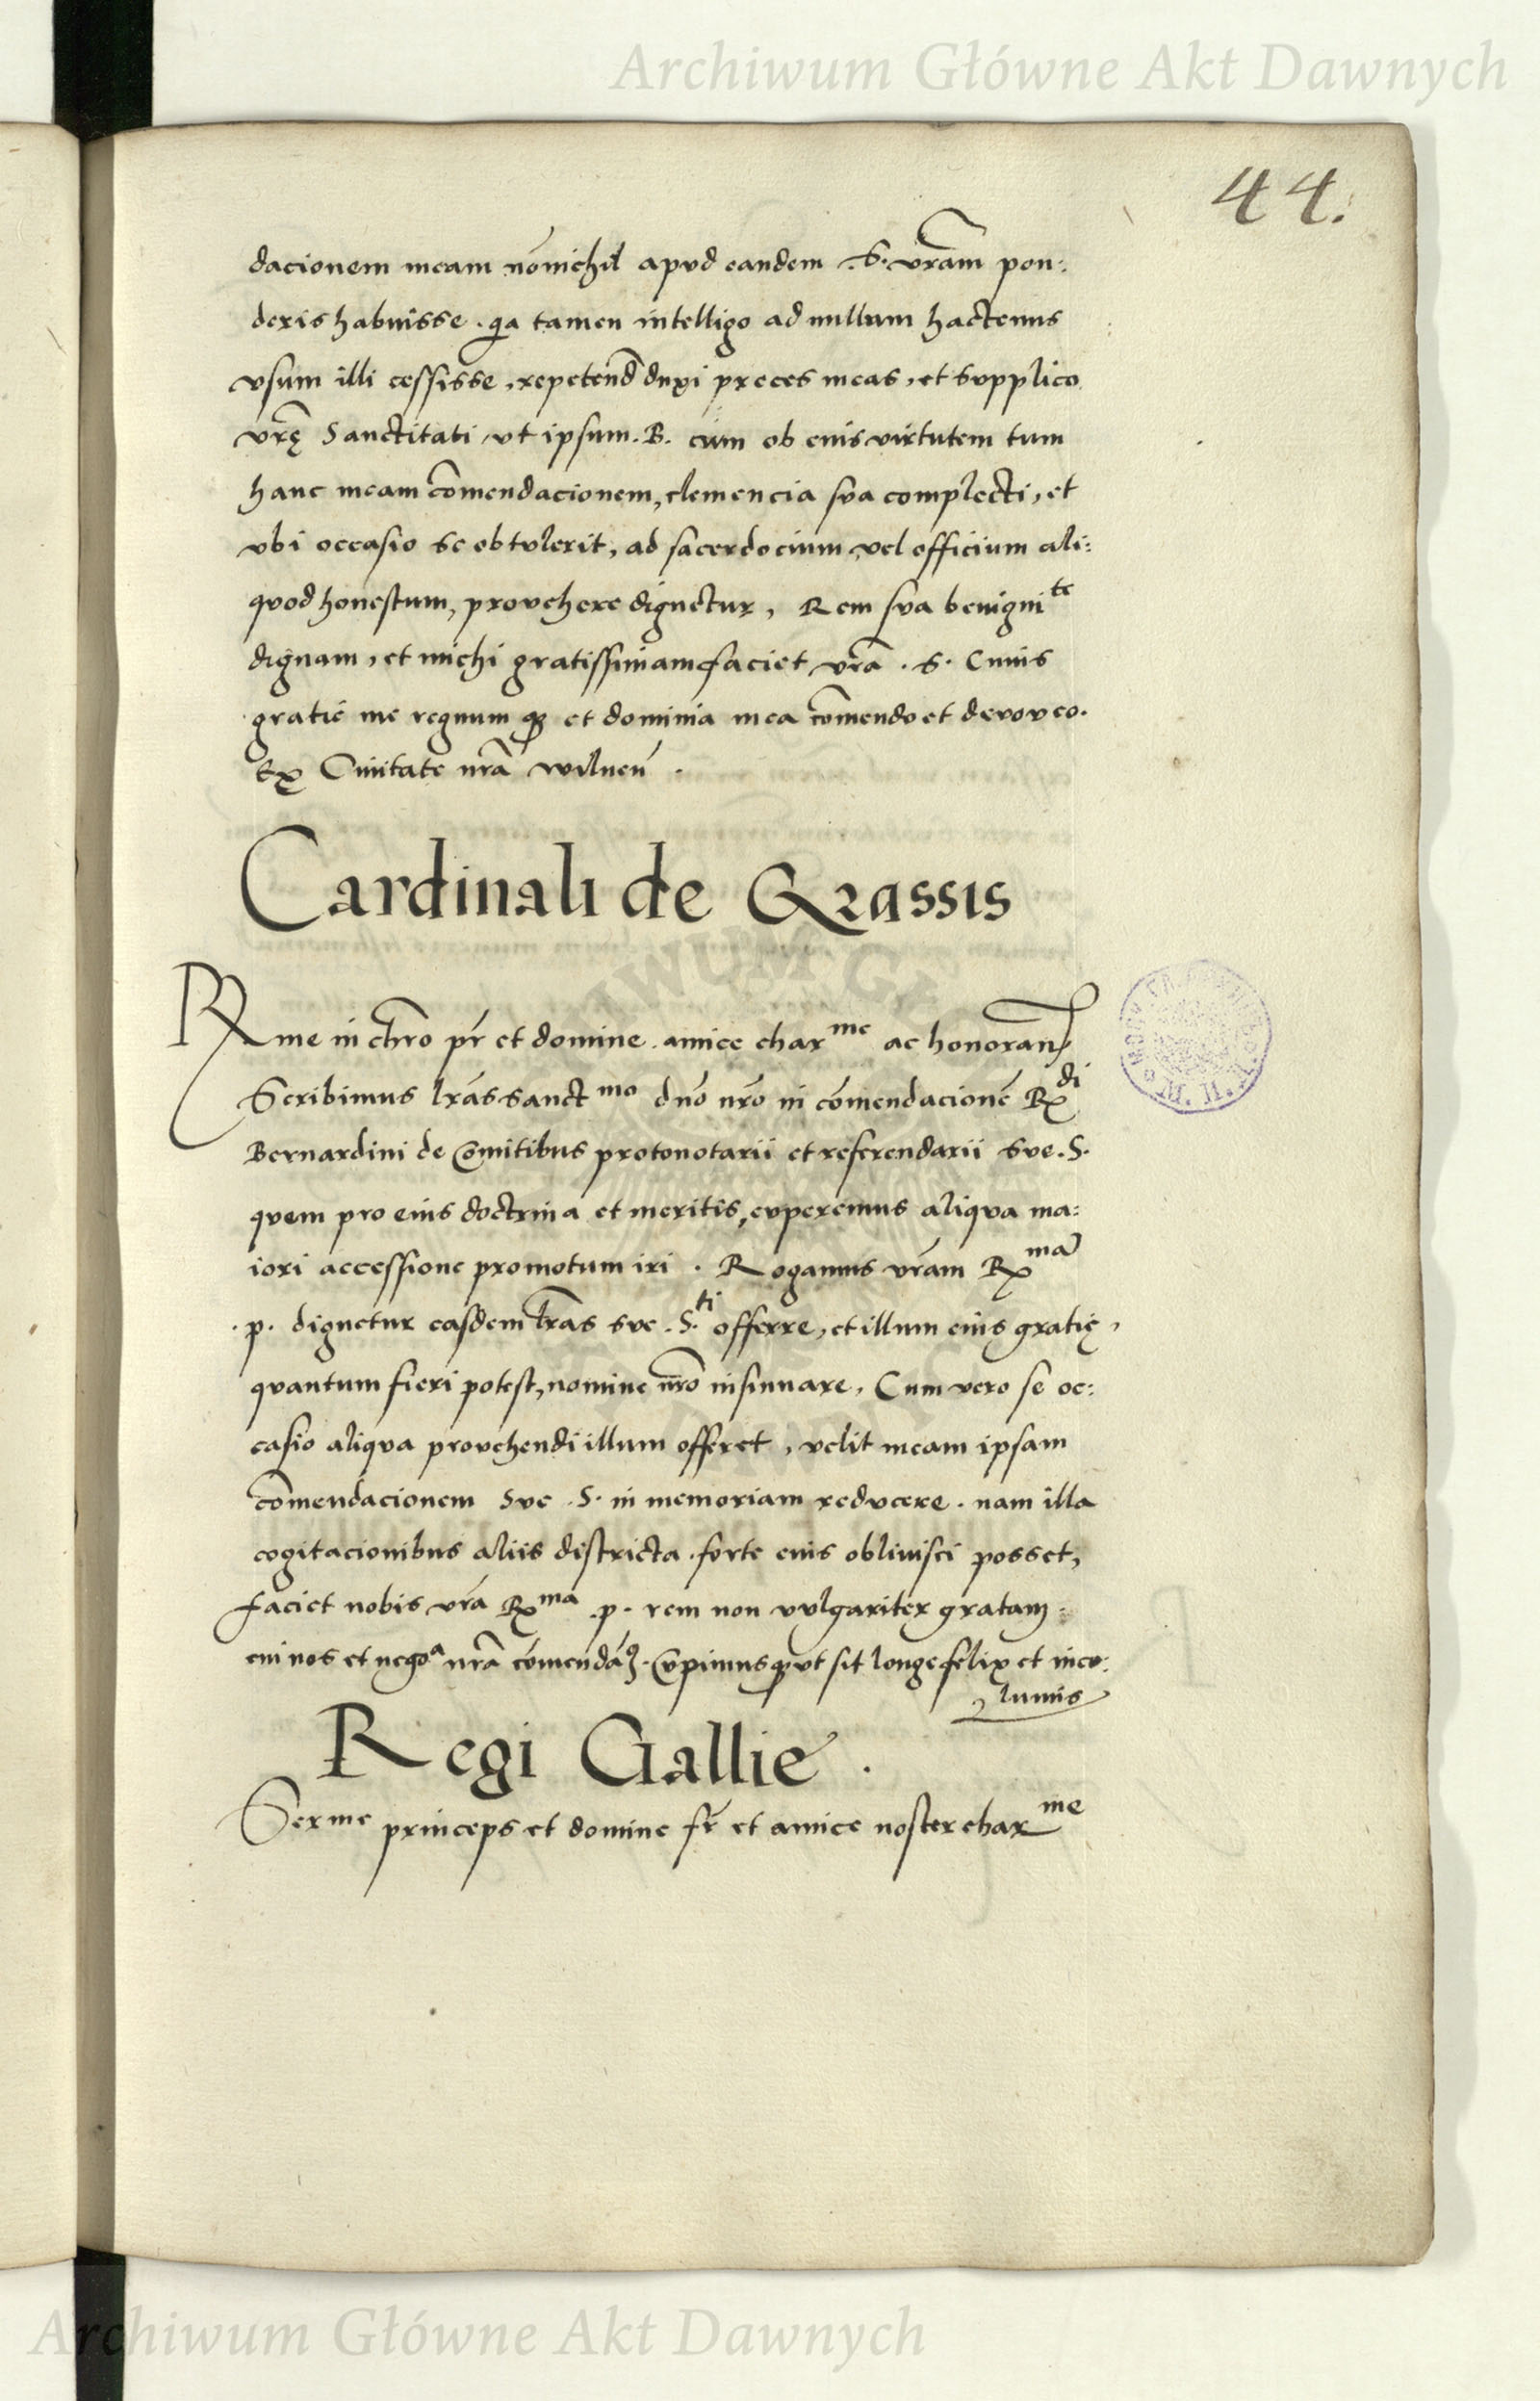 Archiwum Główne Akt Dawnych
44.
dacionem meam nōnichil apud eandem .S. vrām pon:
deris habuisse . qa tamen intelligo ad nullum hactenus
vsum illi cessisse, repetend̄ duxi preces meas, et supplico
vrę Sanctitati vt ipsum .B. cum ob eius virtutem tum
hanc meam cōmendacionem, clemencia sua complecti, et
vbi occasio se obtulerit, ad sacerdocium vel officium ali:
quod honestum, provehere dignetur, Rem sua benignite
dignam, et michi gratissimam faciet vrā . S. Cuius
gratie me regnum q₃ et dominia mea cōmendo et devoveo.
Ex Ciuitate nrā wilneń .
Cardinali de Grassis
Rme in chro pr̄ et domine . amice charme ac honoran̄
Scribimus lrās sanctmo dnō nrō in cōmendacionē Rxdi
Bernardini de Comitibus protonotarii et referendarii sue .S.
quem pro eius doctrina et meritis, cuperemus aliqua ma:
iori accessione promotum iri . Rogamus vrām Rxmā
.p. dignetur easdem lrās sue .S.ti offerre, et illum eius gratię,
quantum fieri potest, nomine nrō insinuare, Cum vero se oc:
casio aliqua provehendi illum offeret, velit meam ipsam
cōmendacionem sue .S. in memoriam reducere . nam illa
cogitacionibus aliis districta . forte eius obliuisci posset,
faciet nobis vrā Rxma .p. rem non vulgariter gratam .
cui nos et negoa nrā cōmendām9 . Cupimusq₃ vt sit longe felix et inco:
lumis
Regi Gallie .
Serme princeps et domine fr̄ et amice noster charme
Archiwum Główne Akt Dawnych